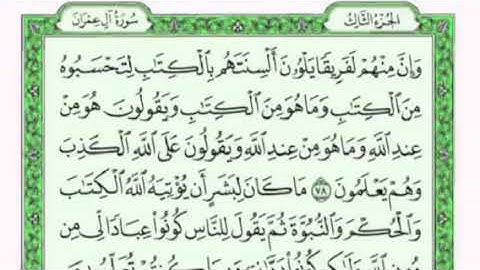 الجزء الثالث
سورة آل عمران
وَإِنَّ مِنْهُمْ لَفَرِيقًا يَلْوُۥنَ أَلْسِنَتَهُم بِالْكِتَٰبِ لِتَحْسَبُوهُ
مِنَ الْكِتَٰبِ وَمَا هُوَ مِنَ الْكِتَٰبِ وَيَقُولُونَ هُوَ مِنْ
عِندِ اللَّهِ وَمَا هُوَ مِنْ عِندِ اللَّهِ وَيَقُولُونَ عَلَى اللَّهِ الْكَذِبَ
وَهُمْ يَعْلَمُونَ ٧٨ مَا كَانَ لِبَشَرٍ أَن يُؤْتِيَهُ اللَّهُ الْكِتَٰبَ
وَالْحُكْمَ وَالنُّبُوَّةَ ثُمَّ يَقُولَ لِلنَّاسِ كُونُوا عِبَادًا لِّي مِن